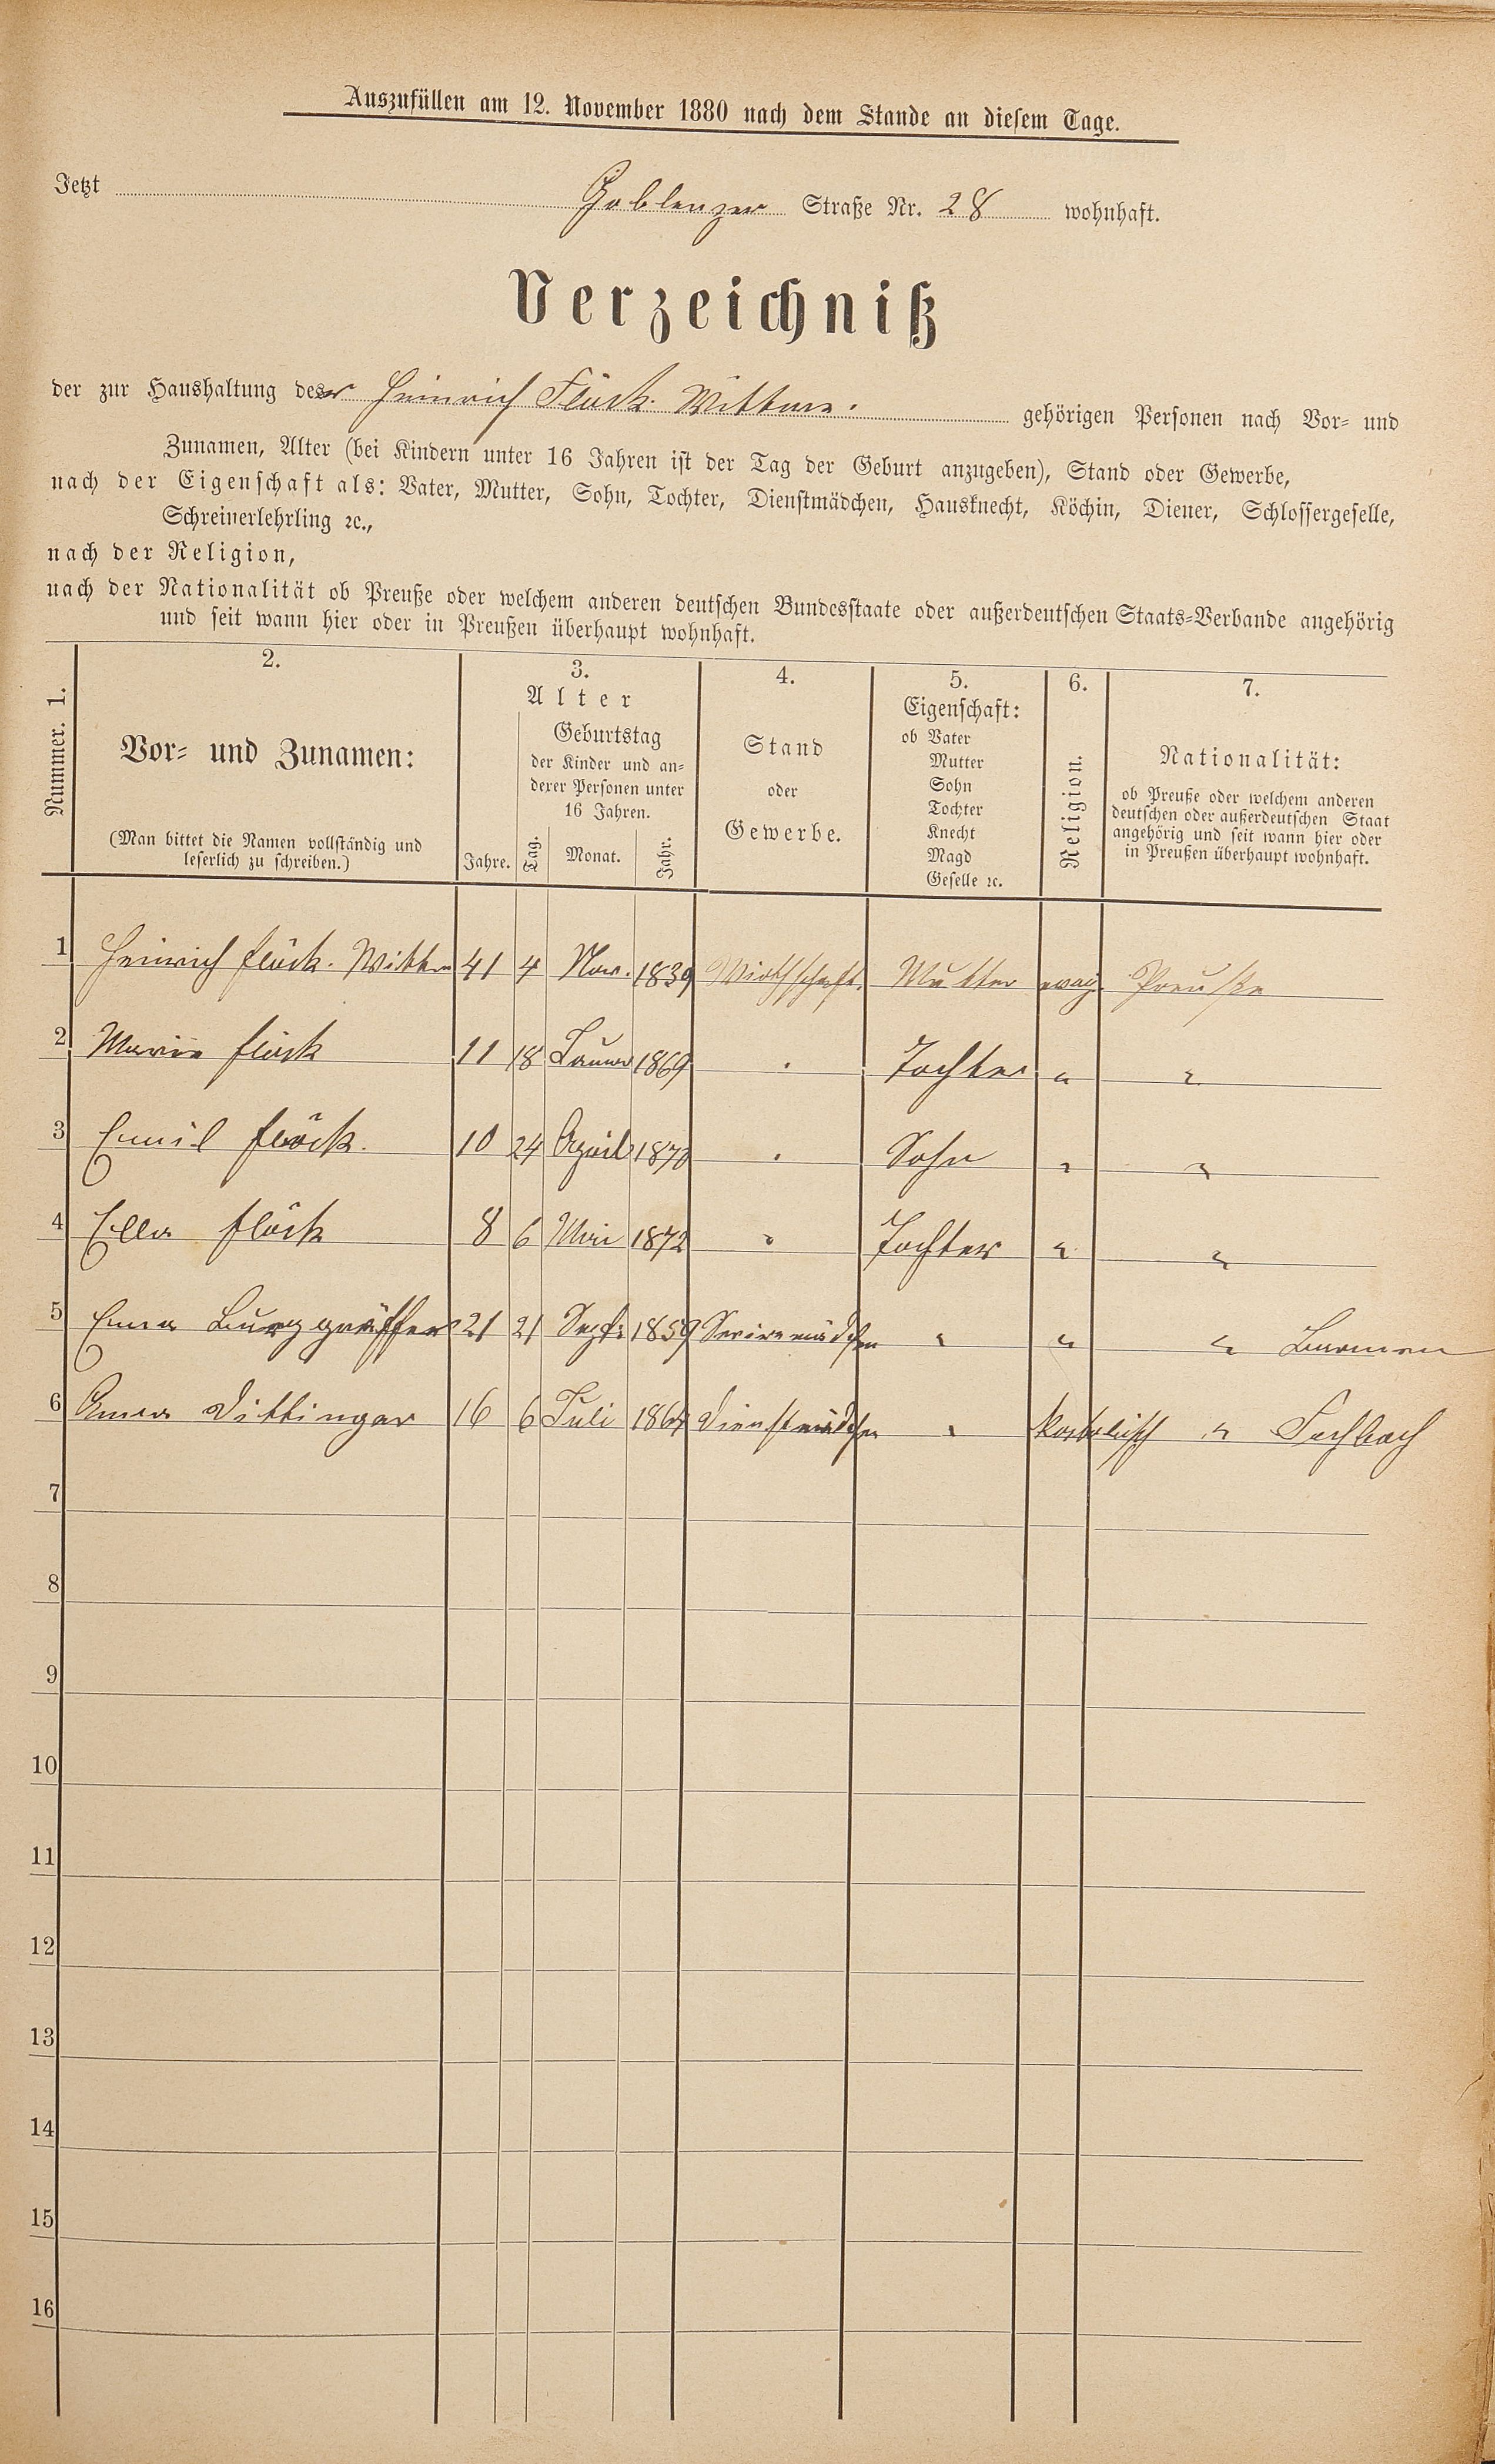 Auszufüllen am 12. November 1880 nach dem Stande an diesem Tage.
Jetzt Coblenzer Straße Nr. 28 wohnhaft.
Verzeichniß
der zur Haushaltung der Heinrich Flöck. Wittwe. gehörigen Personen nach Vor- und
Zunamen, Alter (bei Kindern unter 16 Jahren ist der Tag der Geburt anzugeben), Stand oder Gewerbe,
nach der Eigenschaft als: Vater, Mutter, Sohn, Tochter, Dienstmädchen, Hausknecht, Köchin, Diener, Schlossergeselle,
Schreinerlehrling ꝛc.,
nach der Religion,
nach der Nationalität ob Preuße oder welchem anderen deutschen Bundesstaate oder außerdeutschen Staats-Verbande angehörig
und seit wann hier oder in Preußen überhaupt wohnhaft.
Nummer. 1.
2.
Vor- und Zunamen:
(Man bittet die Namen vollständig und
leserlich zu schreiben.)
3.
Alter
Geburtstag
der Kinder und an-
derer Personen unter
16 Jahren.
Jahre. Tag. Monat. Jahr.
4.
Stand
oder
Gewerbe.
5.
Eigenschaft:
ob Vater
Mutter
Sohn
Tochter
Knecht
Magd
Geselle ꝛc.
6.
Religion.
7.
Nationalität:
ob Preuße oder welchem anderen
deutschen oder außerdeutschen Staat
angehörig und seit wann hier oder
in Preußen überhaupt wohnhaft.
1 Heinrich Flöck. Wittwe 41 4 Nov. 1839 Wirthschaft. Mutter evag. Preuße
2 Marie Flöck 11 18 Januar 1869 " Tochter " "
3 Emil Flöck. 10 24 April 1870 " Sohn " "
4 Ella Flöck 8 6 Mai 1872 " Tochter " "
5 Emma Burggräffer 21 21 Sept. 1859 Serviremädchen " " " Barmen
6 Anna Dittinger 16 6 Juli 1864 Dienstmädchen " katolisch " Fachbach
7
8
9
10
11
12
13
14
15
16